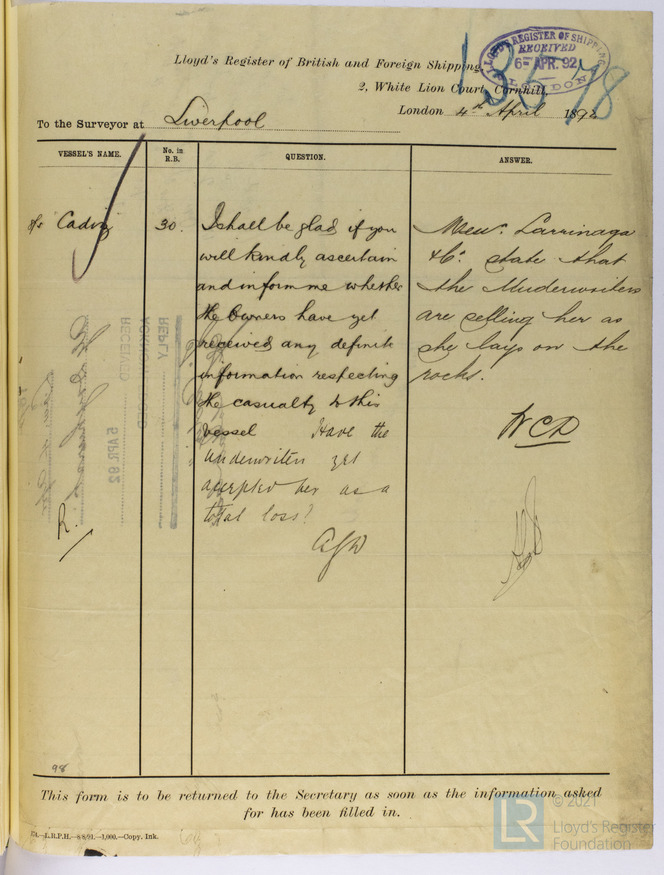 Lloyd's Register of British and Foreign Shipping,
2, White Lion Court, Cornhill,
London 4th April 1892
LLOYD'S REGISTER OF SHIPPING
RECEIVED
6 APR. 92
LONDON
To the Surveyor at Liverpool
VESSEL'S NAME.
No. in R.B.
QUESTION.
ANSWER.
s/s Cadiz
30.
I shall be glad if you
will kindly ascertain
and inform me whether
the Owners have yet
received any definite
information respecting
the casualty to this
vessel Have the
underwriters yet
accepted her as a
total loss?
AGD
R.
Messrs. Larrinaga
& Co. state that
the Underwriters
are selling her as
she lays on the
rocks.
WCD
REPLY
RECEIVED
5 APR 92
98
This form is to be returned to the Secretary as soon as the information asked
for has been filled in.
L.R.P.H.—8/8/91.—1,000.—Copy, Ink.
LR
© 2021
Lloyd's Register
Foundation